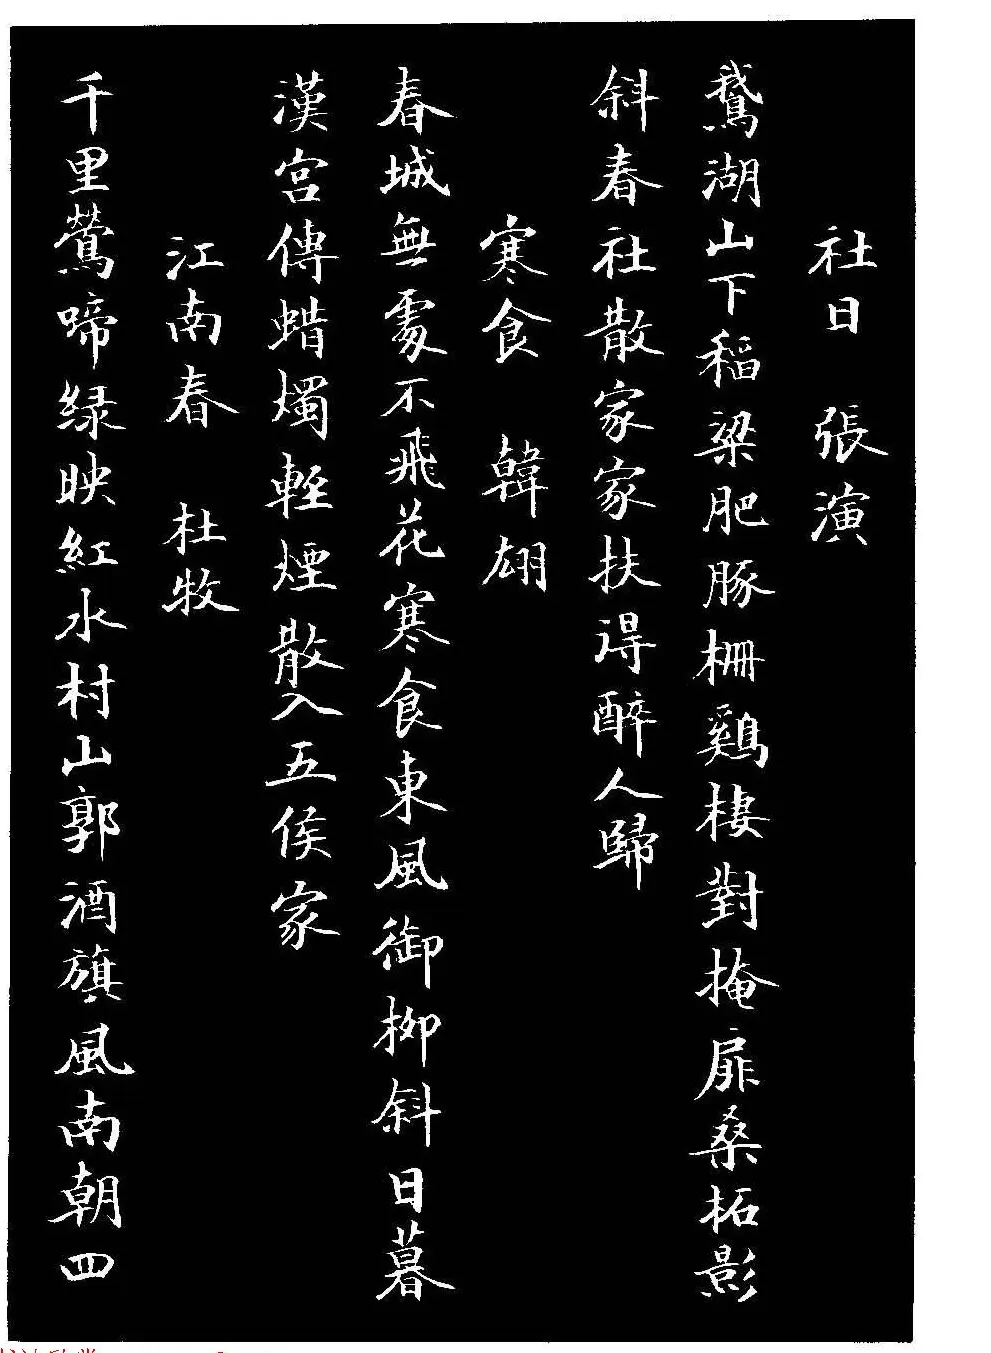 社日 張演
鵝湖山下稻粱肥豚柵鷄棲對掩扉桑柘影
斜春社散家家扶得醉人歸
寒食 韓翃
春城無處不飛花寒食東風御柳斜日暮
漢宮傳蜡燭輕煙散入五侯家
江南春 杜牧
千里鶯啼绿映紅水村山郭酒旗風南朝四